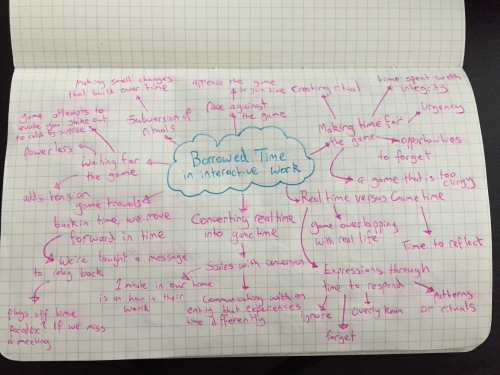 Making small changes
that build over time
appease the game
to gain time
Creating ritual
time spent with
integrity
Urgency
game attempts to
evade you, stake out
to catch by surprise
Subversion of
rituals
Race against
the game
Making time for
the game
opportunities
to forget
powerless
Waiting for
the game
Borrowed Time
in interactive work
a game that is too
clingy
adds tension
game travels
back in time, we move
forward in time
Converting real time
into game time
Real time versus Game time
game overlapping
with real life
Time to reflect
We're taught a message
to relay back
Scales with conversion
1 minute in our time
is an hour in their
world
Expressions through
time to respond
Communicating with an
entity that experiences
time differently
ignore
forget
Overly keen
patterns
or rituals
plays off time
paradox? If we miss
a meeting